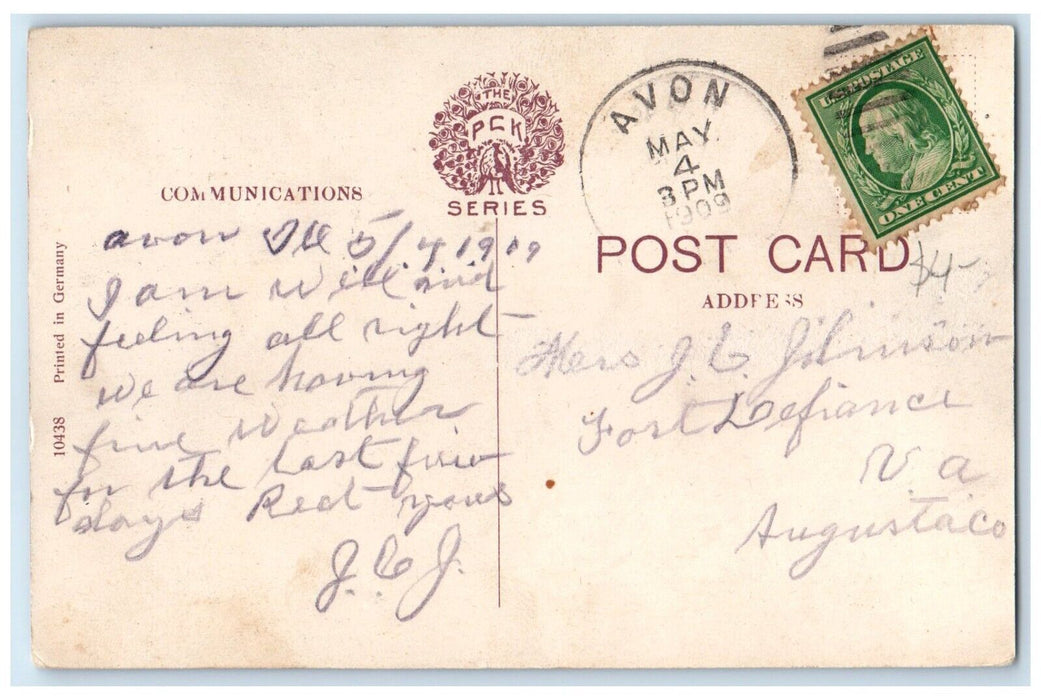 COMMUNICATIONS
avon Ill 5/4 1909
I am well and
feeling all right
we are having
fine weather
for the last few
days Rect yours
J. C. J.
10438 Printed in Germany
THE
PCK
SERIES
AVON
MAY
4
3 PM
1909
U.S. POSTAGE
ONE CENT
POST CARD
$4-
ADDRESS
Mrs J. C. Johnson
Fort Defiance
Va
Augusta co